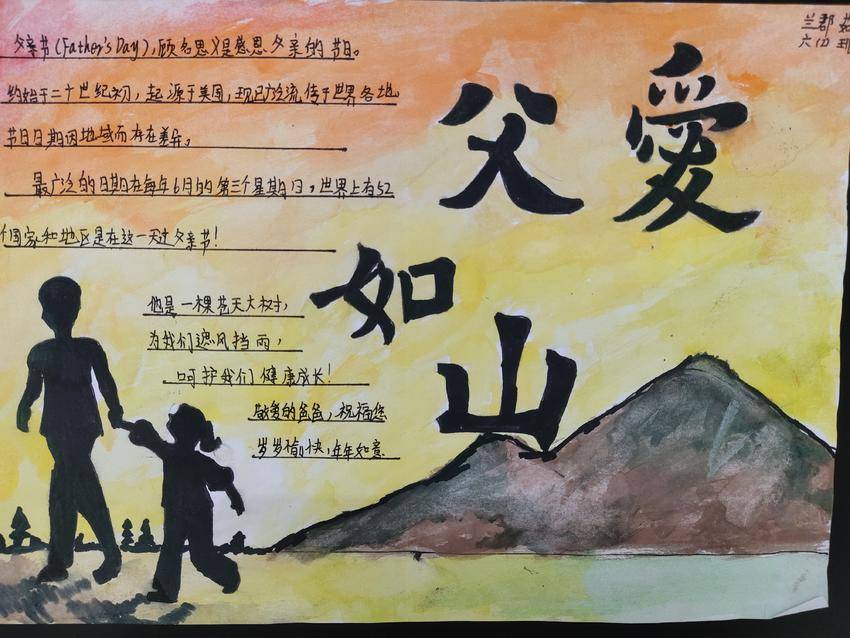 父亲节(Father's Day),顾名思义是感恩父亲的节日。
约始于二十世纪初,起源于美国,现已广泛流传于世界各地。
节日日期因地域而存在差异。
最广泛的日期在每年6月的第三个星期日。世界上有52
个国家和地区是在这一天过父亲节!
父愛
如
山
他是一棵苍天大树,
为我们遮风挡雨,
呵护我们健康成长!
敬爱的爸爸,祝福您
岁岁愉快,年年如意.
兰郡茹
六(1)班